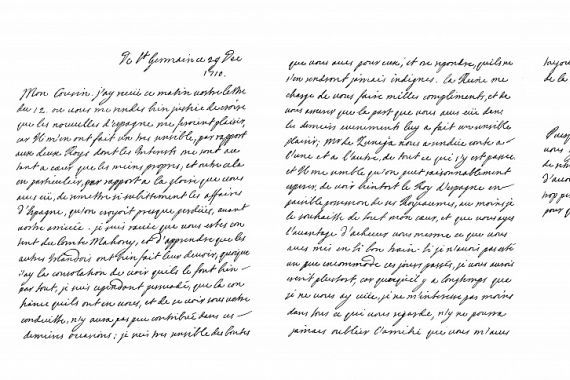 De St Germain ce 29 Dec
1710.
Mon Cousin, j'ay receu ce matin vostre lettre
du 12. ou vous me rendes bien justice de croire
que les nouvelles d'espagne me feroient plaisir,
car Il m'en ont fait un tres sensible, par rapport
aux deux Roys dont les Interests me sont au
tant a cœur que les miens propres, et outre cela
en particulier, par rapport a la gloire que vous
aves eüe, de remettre si subitement les affaires
d'Espagne, qu'on croyoit presque perdües, avant
vostre arrivée. je suis ravie que vous estes con
tent du Comte Mahoney, et d'apprendre que les
autres Irlandois ont bien fait leur devoir, quoyque
j'ay la consolation de voir qu'ils le font bien
par tout, je suis cependant persuadée, que la con
fiance qu'ils ont en vous, et de ce voir sous vostre
conduitte, n'y aura pas peu contribué dans ces
derniers occasions; je suis tres sensible des bontes
que vous aves pour eux, et ose repondre, qu'ils ne
s'en rendront jamais indignes. la Reine me
charge de vous faire milles compliments, et de
vous asseurer que la part que vous aves eüe dans
les derniers evenements luy a fait un sensible
plaisir, Mr de Zuniga nous a rendüe conte a
l'une et a l'autre, de tout ce qui s'y est passé,
et Il me semble qu'on peut raisonnablement
esperer, de voir bientost le Roy d'espagne en
paisible possession de ses Royaumes, au moins je
le souhaitte de tout mon cœur, et que vous ayes
l'avantage d'achever vous mesme ce que vous
aves mis en si bon train. si je n'avois pas esté
un peu incommodé ces jours passés, je vous aurois
écrit plustost, car quoyqu'il y a longtemps que
je ne vous ay veüe, je ne m'interesse pas moins
dans tous ce qui vous regarde, n'y ne pourra
jamais oublier l'amitié que vous m'aves